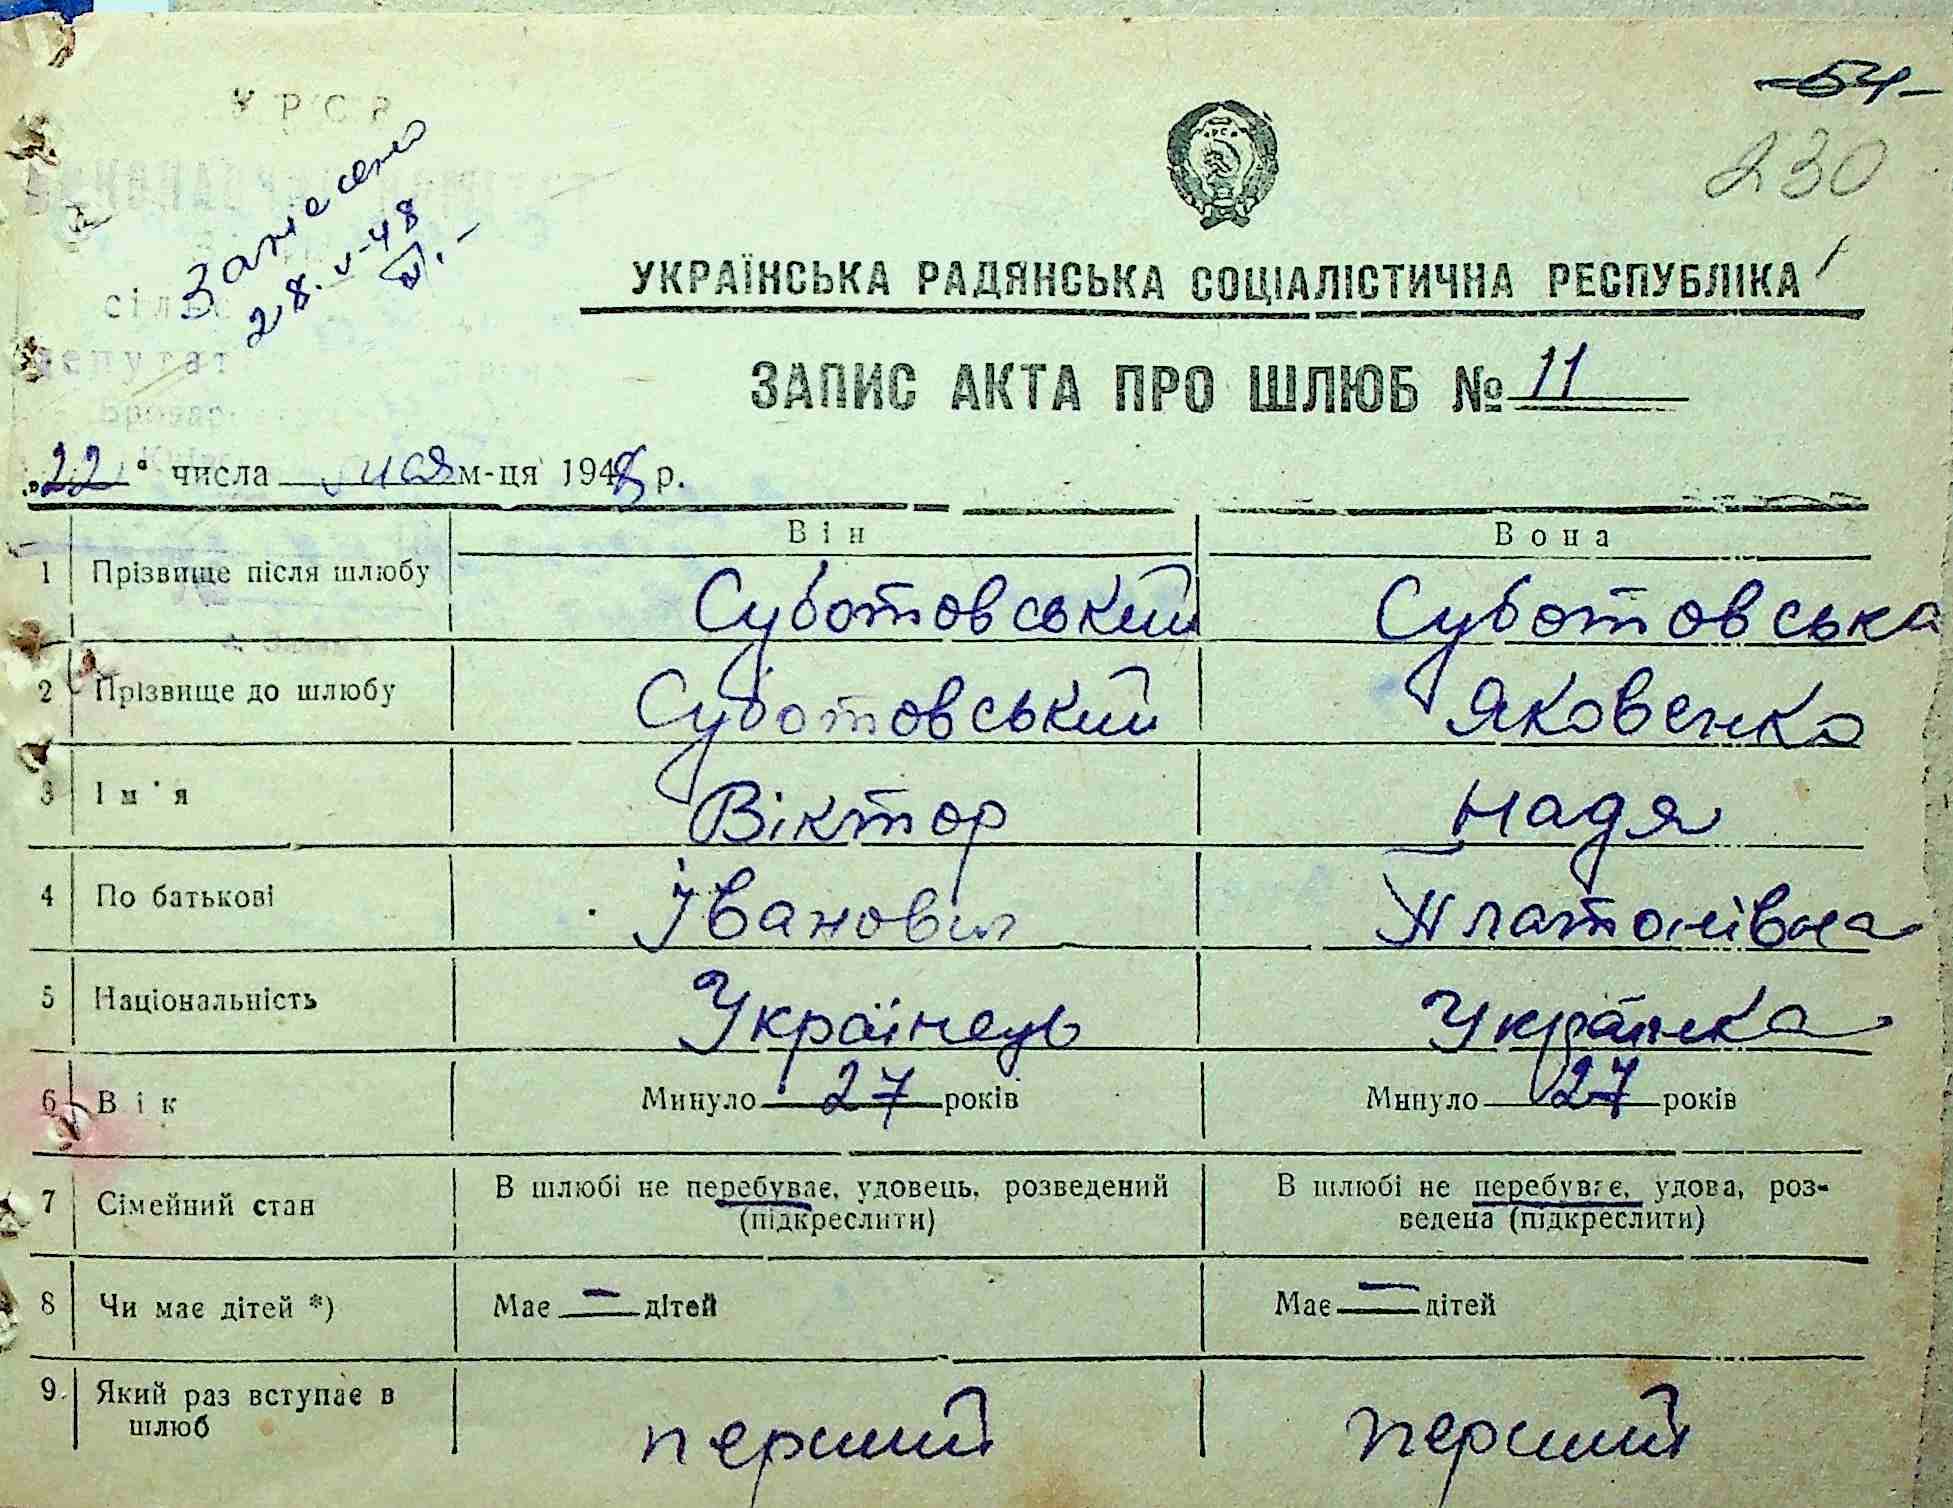 -54-
230
У Р С Р
Занесено
28.V-48
сіль
депутат
Бровар
УКРАЇНСЬКА РАДЯНСЬКА СОЦІАЛІСТИЧНА РЕСПУБЛІКА
ЗАПИС АКТА ПРО ШЛЮБ № 11
„22" числа мая м-ця 1948 р.
Він Вона
1 Прізвище після шлюбу Суботовський Суботовська
2 Прізвище до шлюбу Суботовський Яковенко
3 Ім'я Віктор Надя
4 По батькові Іванович Платонівна
5 Національність Українець Українка
6 Вік Минуло 27 років Минуло 27 років
7 Сімейний стан В шлюбі не перебуває, удовець, розведений В шлюбі не перебуває, удова, роз-
(підкреслити) ведена (підкреслити)
8 Чи має дітей *) Має — дітей Має — дітей
9. Який раз вступає в
шлюб перший перший